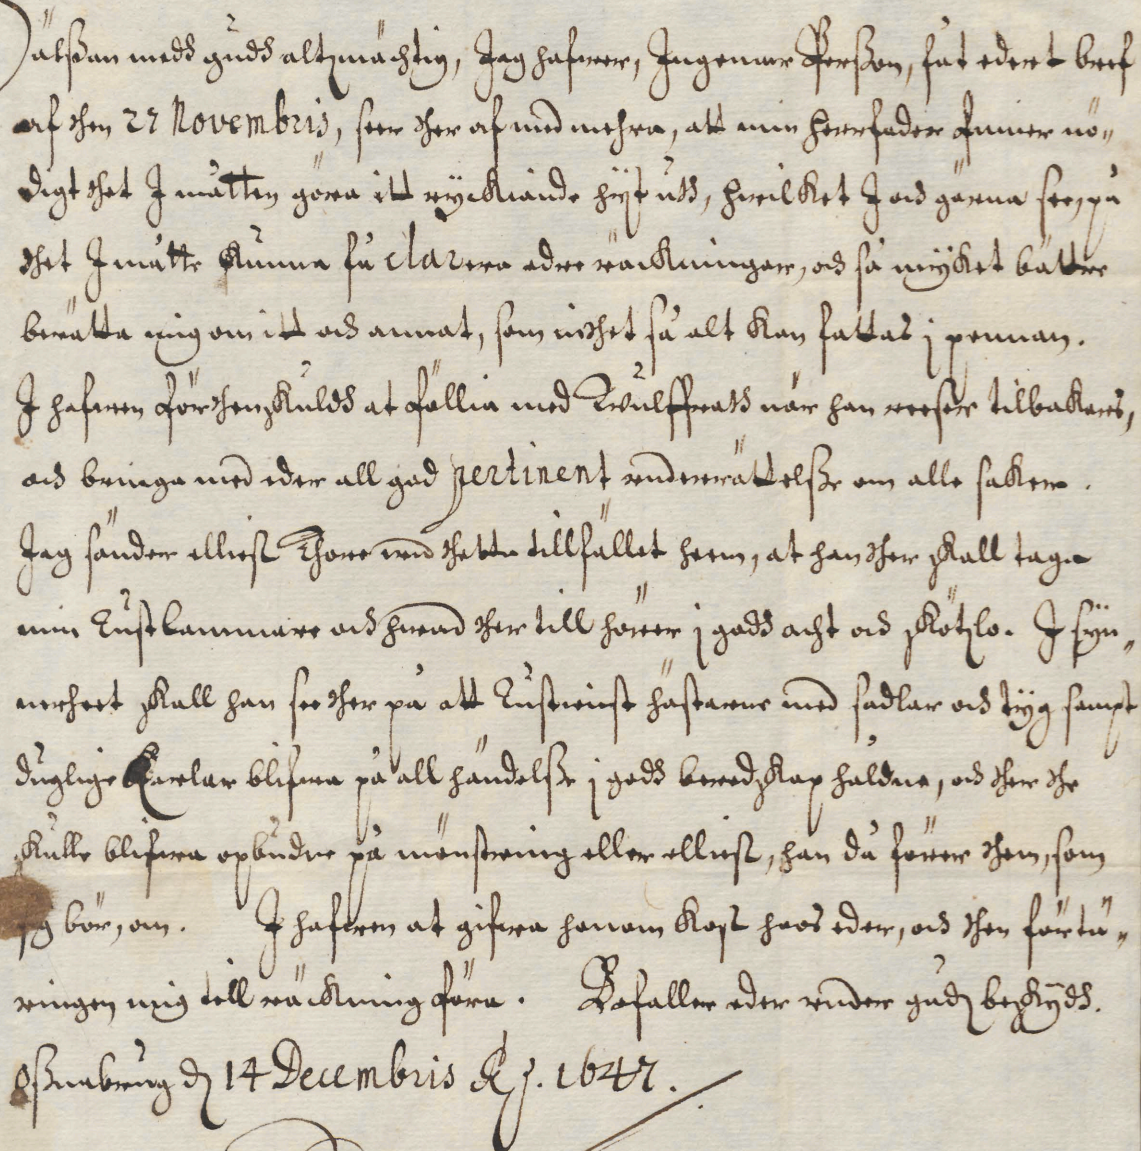 Hälssan medh gudh altzmächtig, Jag hafwer, Ingemar Persson, fåt edert bref
af then 27 Novembris, seer ther af med mehra, att min herrfader finner nö-
digt thet I måtten göra itt ryckiande hijt uth, hwilket I och gärna see, på
thet I måtte kunna få clarera edre räckningar, och så myket bättre
berätta mig om itt och annat, som icke så alt kan fattas i pennan.
I hafwen förthenskuldh at föllia med Wulffrath när han reeser tilbakers,
och bringa med eder all god pertinent underrättelsse om alle saker.
Jag sänder elliest Thore wid thetta tillfället heem, at han ther skall taga
min Rustkammare och hwad ther till hörer i godh acht och skötzlo. I syn-
nerheet skall han see ther på att Rustienst hästarne med sadlar och tyg sampt
duglige Karlar blifwa på all händelsse i godh beredskap håldne, och ther the
skulle blifwa opbudne på mönstring eller elliest, han då förer them, som
sig bör, om. I hafwen at gifwa honom kost hoos eder, och then förtä-
ringen mig till räckning föra. Befaller eder under gudz beskydh.
Ossnabrug dh 14 Decembris A:o 1647.